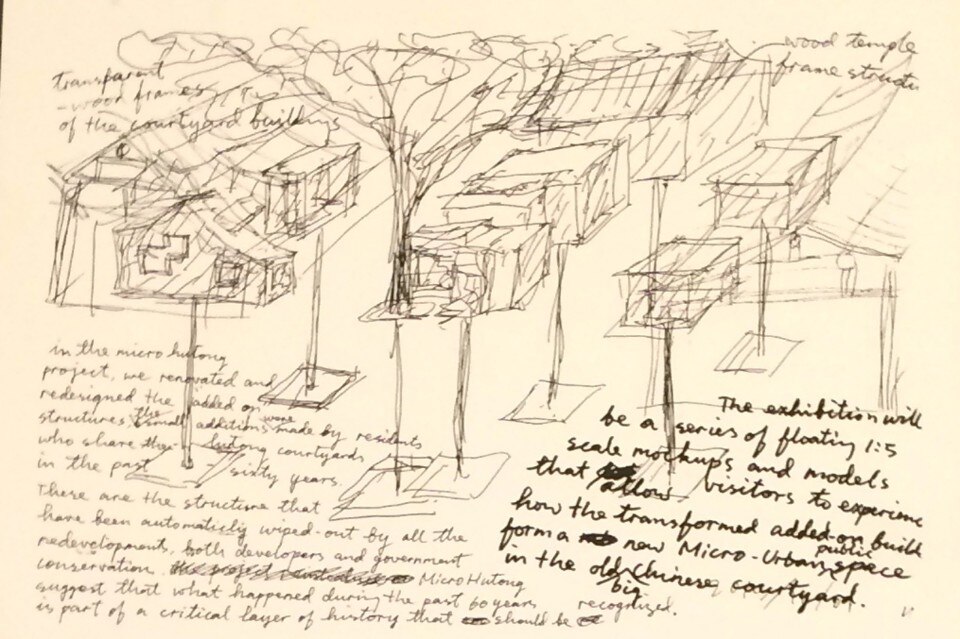 wood temple
frame structu
transparent
-wood frames
of the courtyard buildings
in the micro hutong
project, we renovated and
redesigned the added on
structures. the small additions were made by residents
who share the hutong courtyards
in the past sixty years.
These are the structure that
have been automaticly wiped-out by all the
redevelopments, both developers and government
conservation. MicroHutong
suggest that what happened during the past 60 years
is part of a critical layer of history that should be recognized.
The exhibition will
be a series of floating 1:5
scale mockups and models
that allow visitors to experienc
how the transformed added-on build
form a new Micro-Urban public space
in the old big Chinese courtyard.